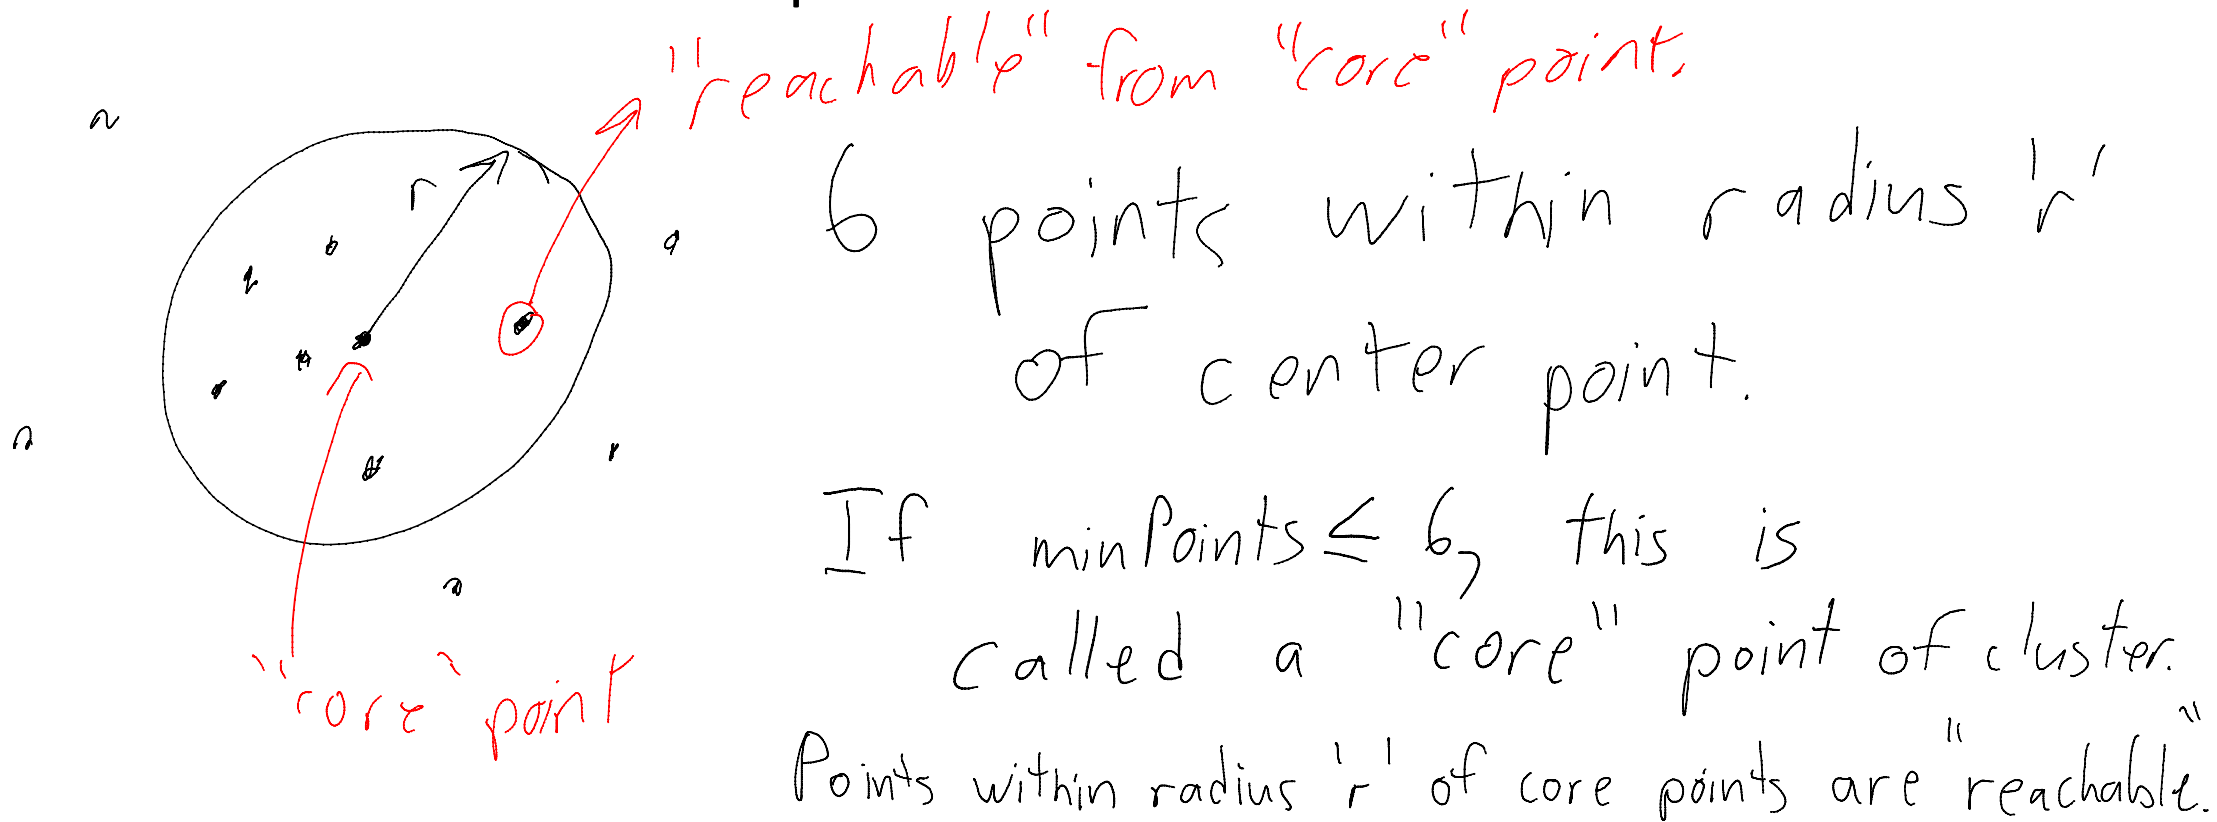 "reachable" from "core" point.
r
6 points within radius 'r'
of center point.
If minPoints ≤ 6, this is
called a "core" point of cluster.
"core" point
Points within radius 'r' of core points are "reachable".